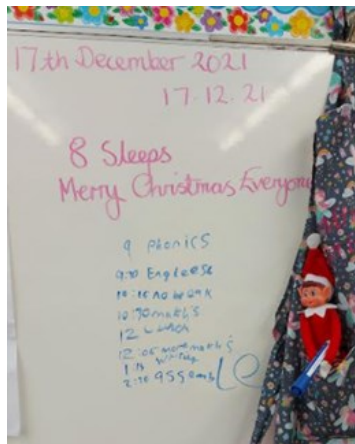 17th December 2021
17.12.21
8 Sleeps
Merry Christmas Everyone
9 Phonics
9:30 Engleese
10:15 no break
10:30 maths
12 Lunch
12:05 more maths
1:15 writing
2:30 assembLe